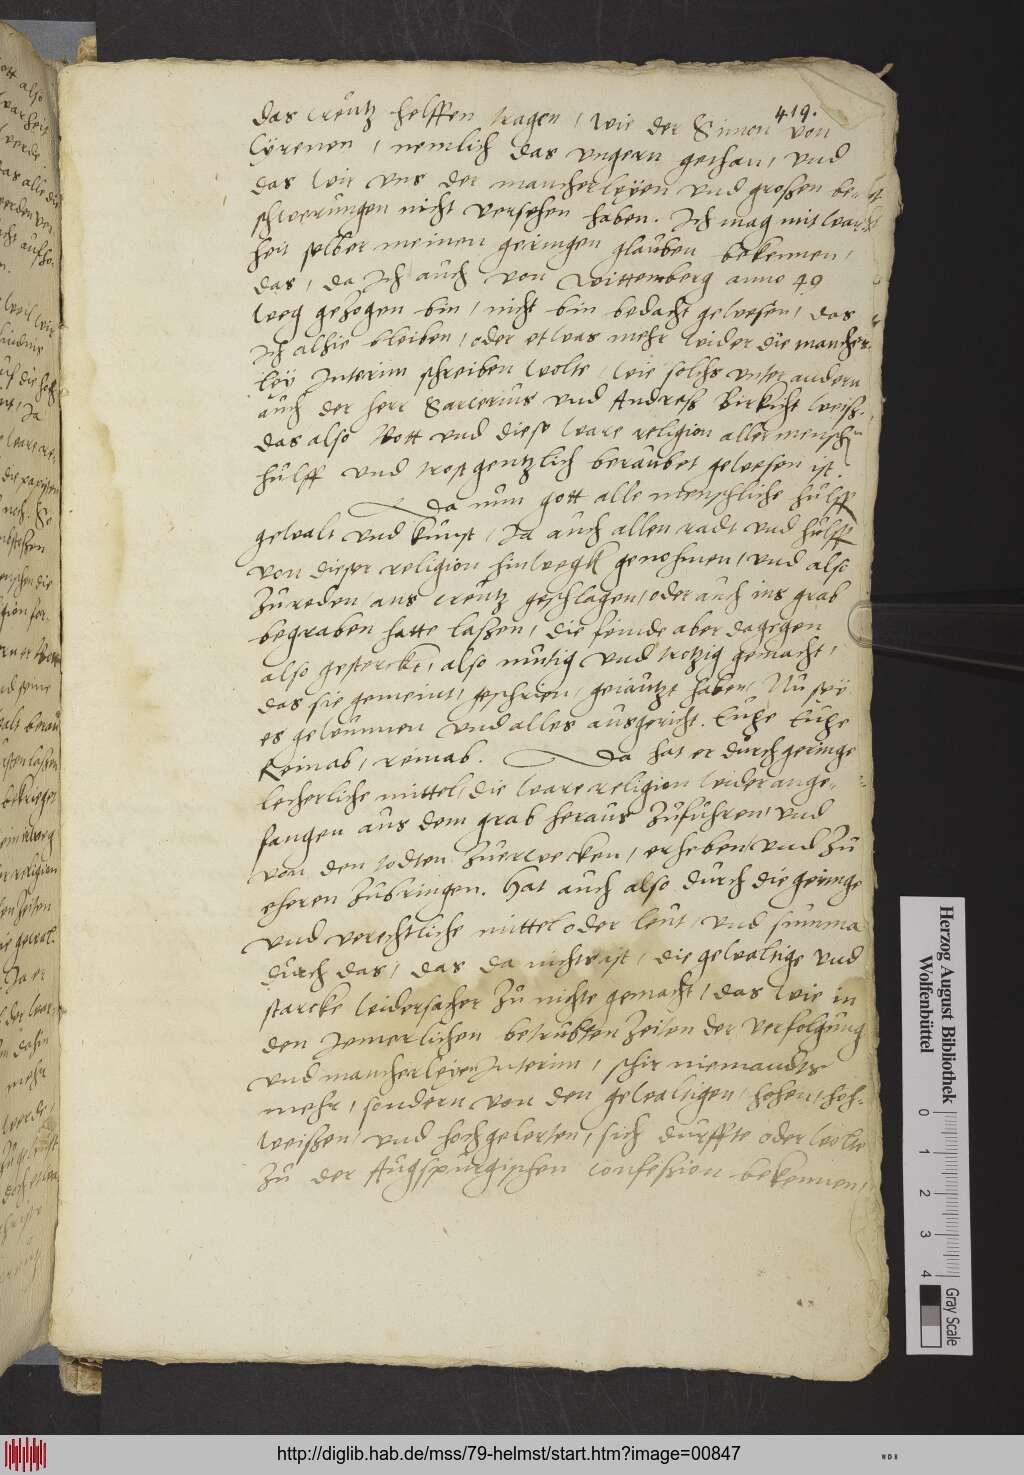 419.
das creutz helffen tragen, wie der Simon von
Cÿrenen, nemlich das ungern gethan, und
das wir uns der mancherleÿen und großen be-
schwerungen nicht versehen haben. Ich mag mit war-
heit selber meinen geringen glauben bekennen,
das, da ich auch von Wittemberg anno 49
weg gezogen bin, nicht bin bedacht gewesen, das
ich alhie bleiben, oder etwas mehr wider die mancher-
leÿ Interim schreiben wolte, wie solchs unter andern
auch der herr Sarcerius und Andreas Birkicht weiß.
das also Gott und diese ware religion aller mensch
hülff und trost gentzlich beraubet gewesen ist.
Da nun gott alle menschliche hülff
gewalt und kunst, Ja auch allen radt und hülff
von dieser religion hinwegk genohmen, und also
zureden, ans creutz geschlagen, oder auch ins grab
begraben hatte laßen, die feinde aber dagegen
also gesterckt, also mutig und trotzig gemacht,
das sie gemeint, geschrien, gejautzt haben, Nu seÿ
es gewunnen und alles ausgericht.
reinab, reinab. Da hat er durch geringe
lecherliche mittel, die ware religion wider ange-
fangen aus dem grab heraus zuführen, und
von den todten zuerwecken, erheben, und zu
eheren zubringen. Hat auch also durch die geringe
und verechtliche mittel oder leut, und summa
durch das, das da nichts ist, die gewaltige und
starcke widersacher zu nichte gemacht, das wie in
den Jemerlichen betrübten zeiten der verfolgung
und mancherleÿen Interim, schir niemandts
mehr, sondern von den gewaltigen, hohen, hoch-
weißen, und hochgelerten, sich durffte oder wolte
zu der Augspurgischen confession bekennen,
Herzog August Bibliothek
Wolfenbüttel
0 1 2 3 4
Gray Scale
http://diglib.hab.de/mss/79-helmst/start.htm?image=00847